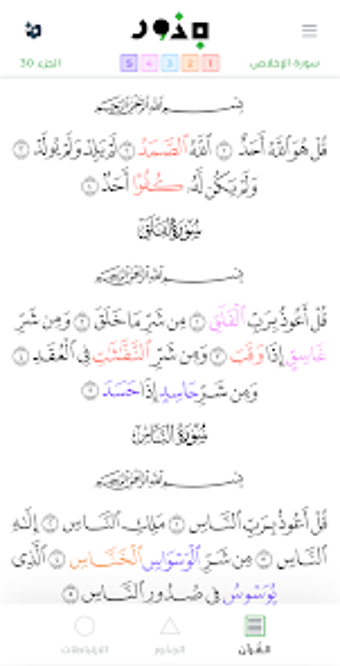 جذور
سورة الإخلاص 1 2 3 4 5 الجزء 30
بِسْمِ ٱللَّهِ ٱلرَّحْمَٰنِ ٱلرَّحِيمِ
قُلْ هُوَ ٱللَّهُ أَحَدٌ ١ ٱللَّهُ ٱلصَّمَدُ ٢ لَمْ يَلِدْ وَلَمْ يُولَدْ ٣
وَلَمْ يَكُن لَّهُۥ كُفُوًا أَحَدٌۢ ٤
سُورَةُ الفَلَقِ
بِسْمِ ٱللَّهِ ٱلرَّحْمَٰنِ ٱلرَّحِيمِ
قُلْ أَعُوذُ بِرَبِّ ٱلْفَلَقِ ١ مِن شَرِّ مَا خَلَقَ ٢ وَمِن شَرِّ
غَاسِقٍ إِذَا وَقَبَ ٣ وَمِن شَرِّ ٱلنَّفَّٰثَٰتِ فِى ٱلْعُقَدِ ٤
وَمِن شَرِّ حَاسِدٍ إِذَا حَسَدَ ٥
سُورَةُ النَّاسِ
بِسْمِ ٱللَّهِ ٱلرَّحْمَٰنِ ٱلرَّحِيمِ
قُلْ أَعُوذُ بِرَبِّ ٱلنَّاسِ ١ مَلِكِ ٱلنَّاسِ ٢ إِلَٰهِ
ٱلنَّاسِ ٣ مِن شَرِّ ٱلْوَسْوَاسِ ٱلْخَنَّاسِ ٤ ٱلَّذِى
يُوَسْوِسُ فِى صُدُورِ ٱلنَّاسِ ٥
القرآن الجذور الارتباطات